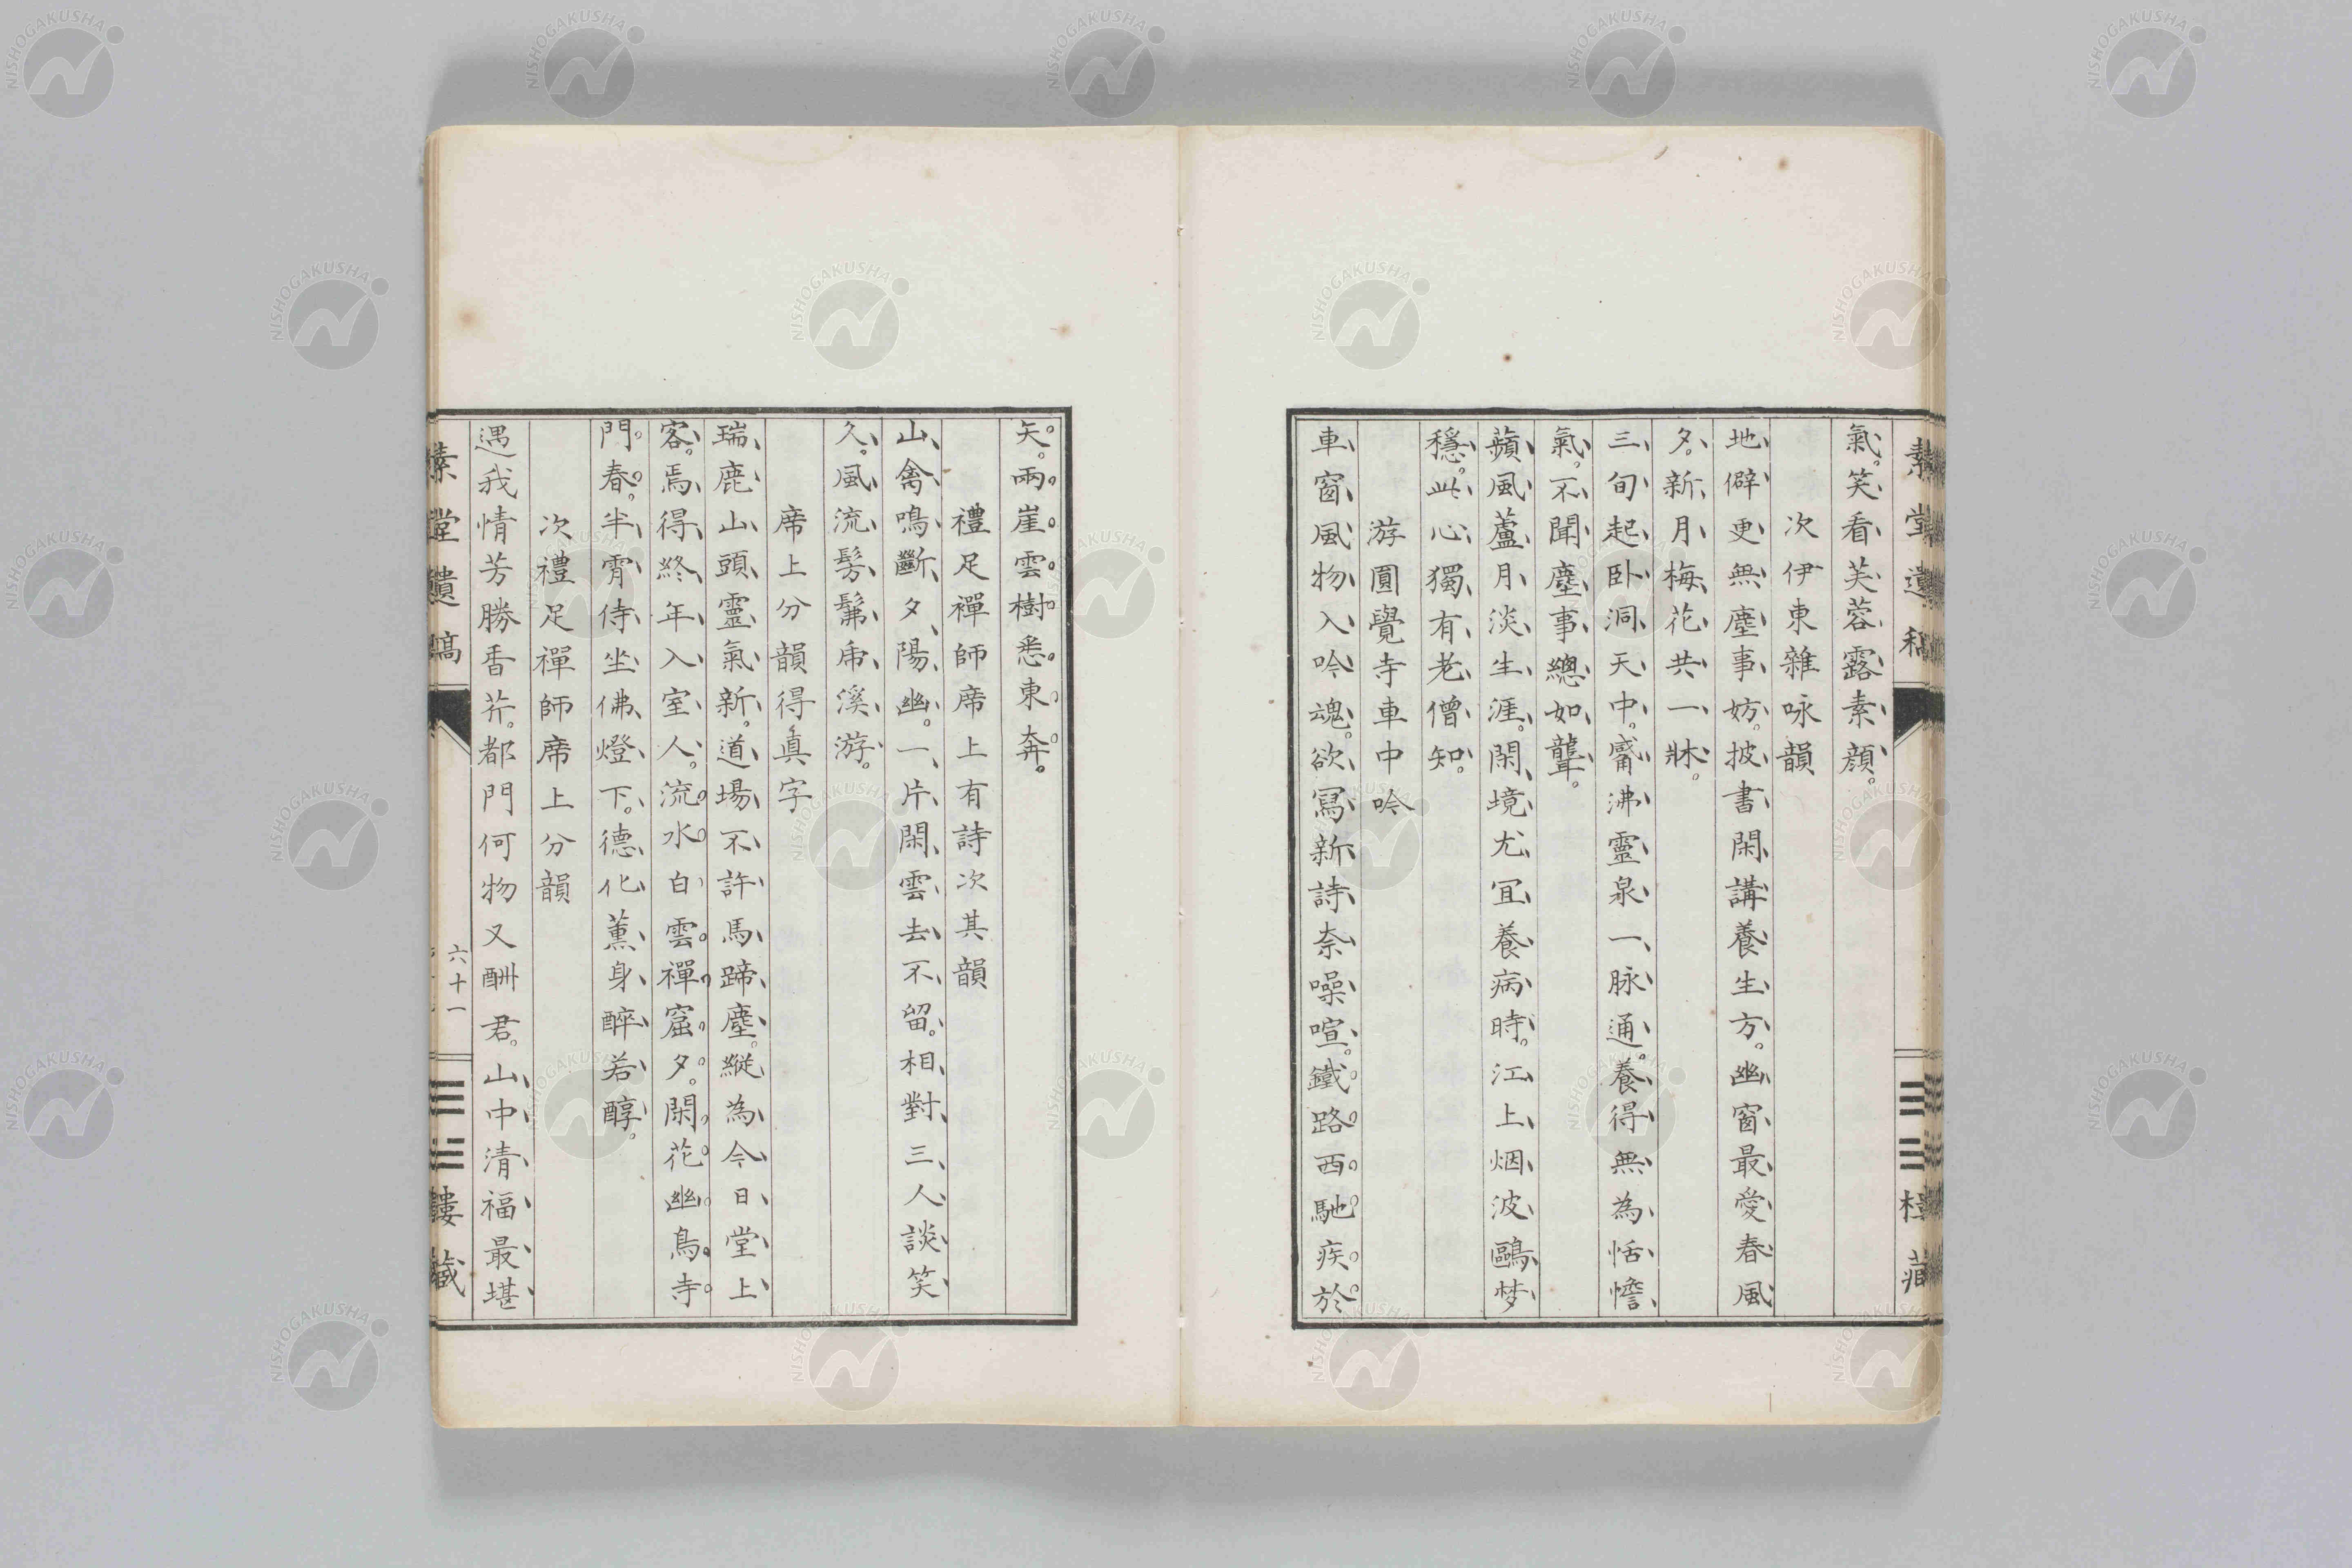 素堂遺稿
氣。笑看芙蓉露素顏。
次伊東雜咏韻
地僻更無塵事妨。披書閑講養生方。幽窗最愛春風
夕。新月梅花共一牀。
三旬起臥洞天中。觱沸靈泉一脉通。養得無為恬憺
氣。不聞塵事總如聾。
蘋風蘆月淡生涯。閑境尤宜養病時。江上烟波鷗梦
穩。此心獨有老僧知。
游圓覺寺車中吟
車窗風物入吟魂。欲寫新詩奈噪喧。鐵路西馳疾於
矢。兩崖雲樹悉東奔。
禮足禪師席上有詩次其韻
山禽鳴斷夕陽幽。一片閑雲去不留。相對三人談笑
久。風流髣髴虎溪游。
席上分韻得眞字
瑞鹿山頭靈氣新。道場不許馬蹄塵。縱為今日堂上
客。焉得終年入室人。流水白雲禪窟夕。閑花幽鳥寺
門春。半宵侍坐佛燈下。德化薰身醉若醇。
次禮足禪師席上分韻
遇我情芳勝香芥。都門何物又酬君。山中清福最堪
素堂遺稿
六十一
樓藏
NISHOGAKUSHA